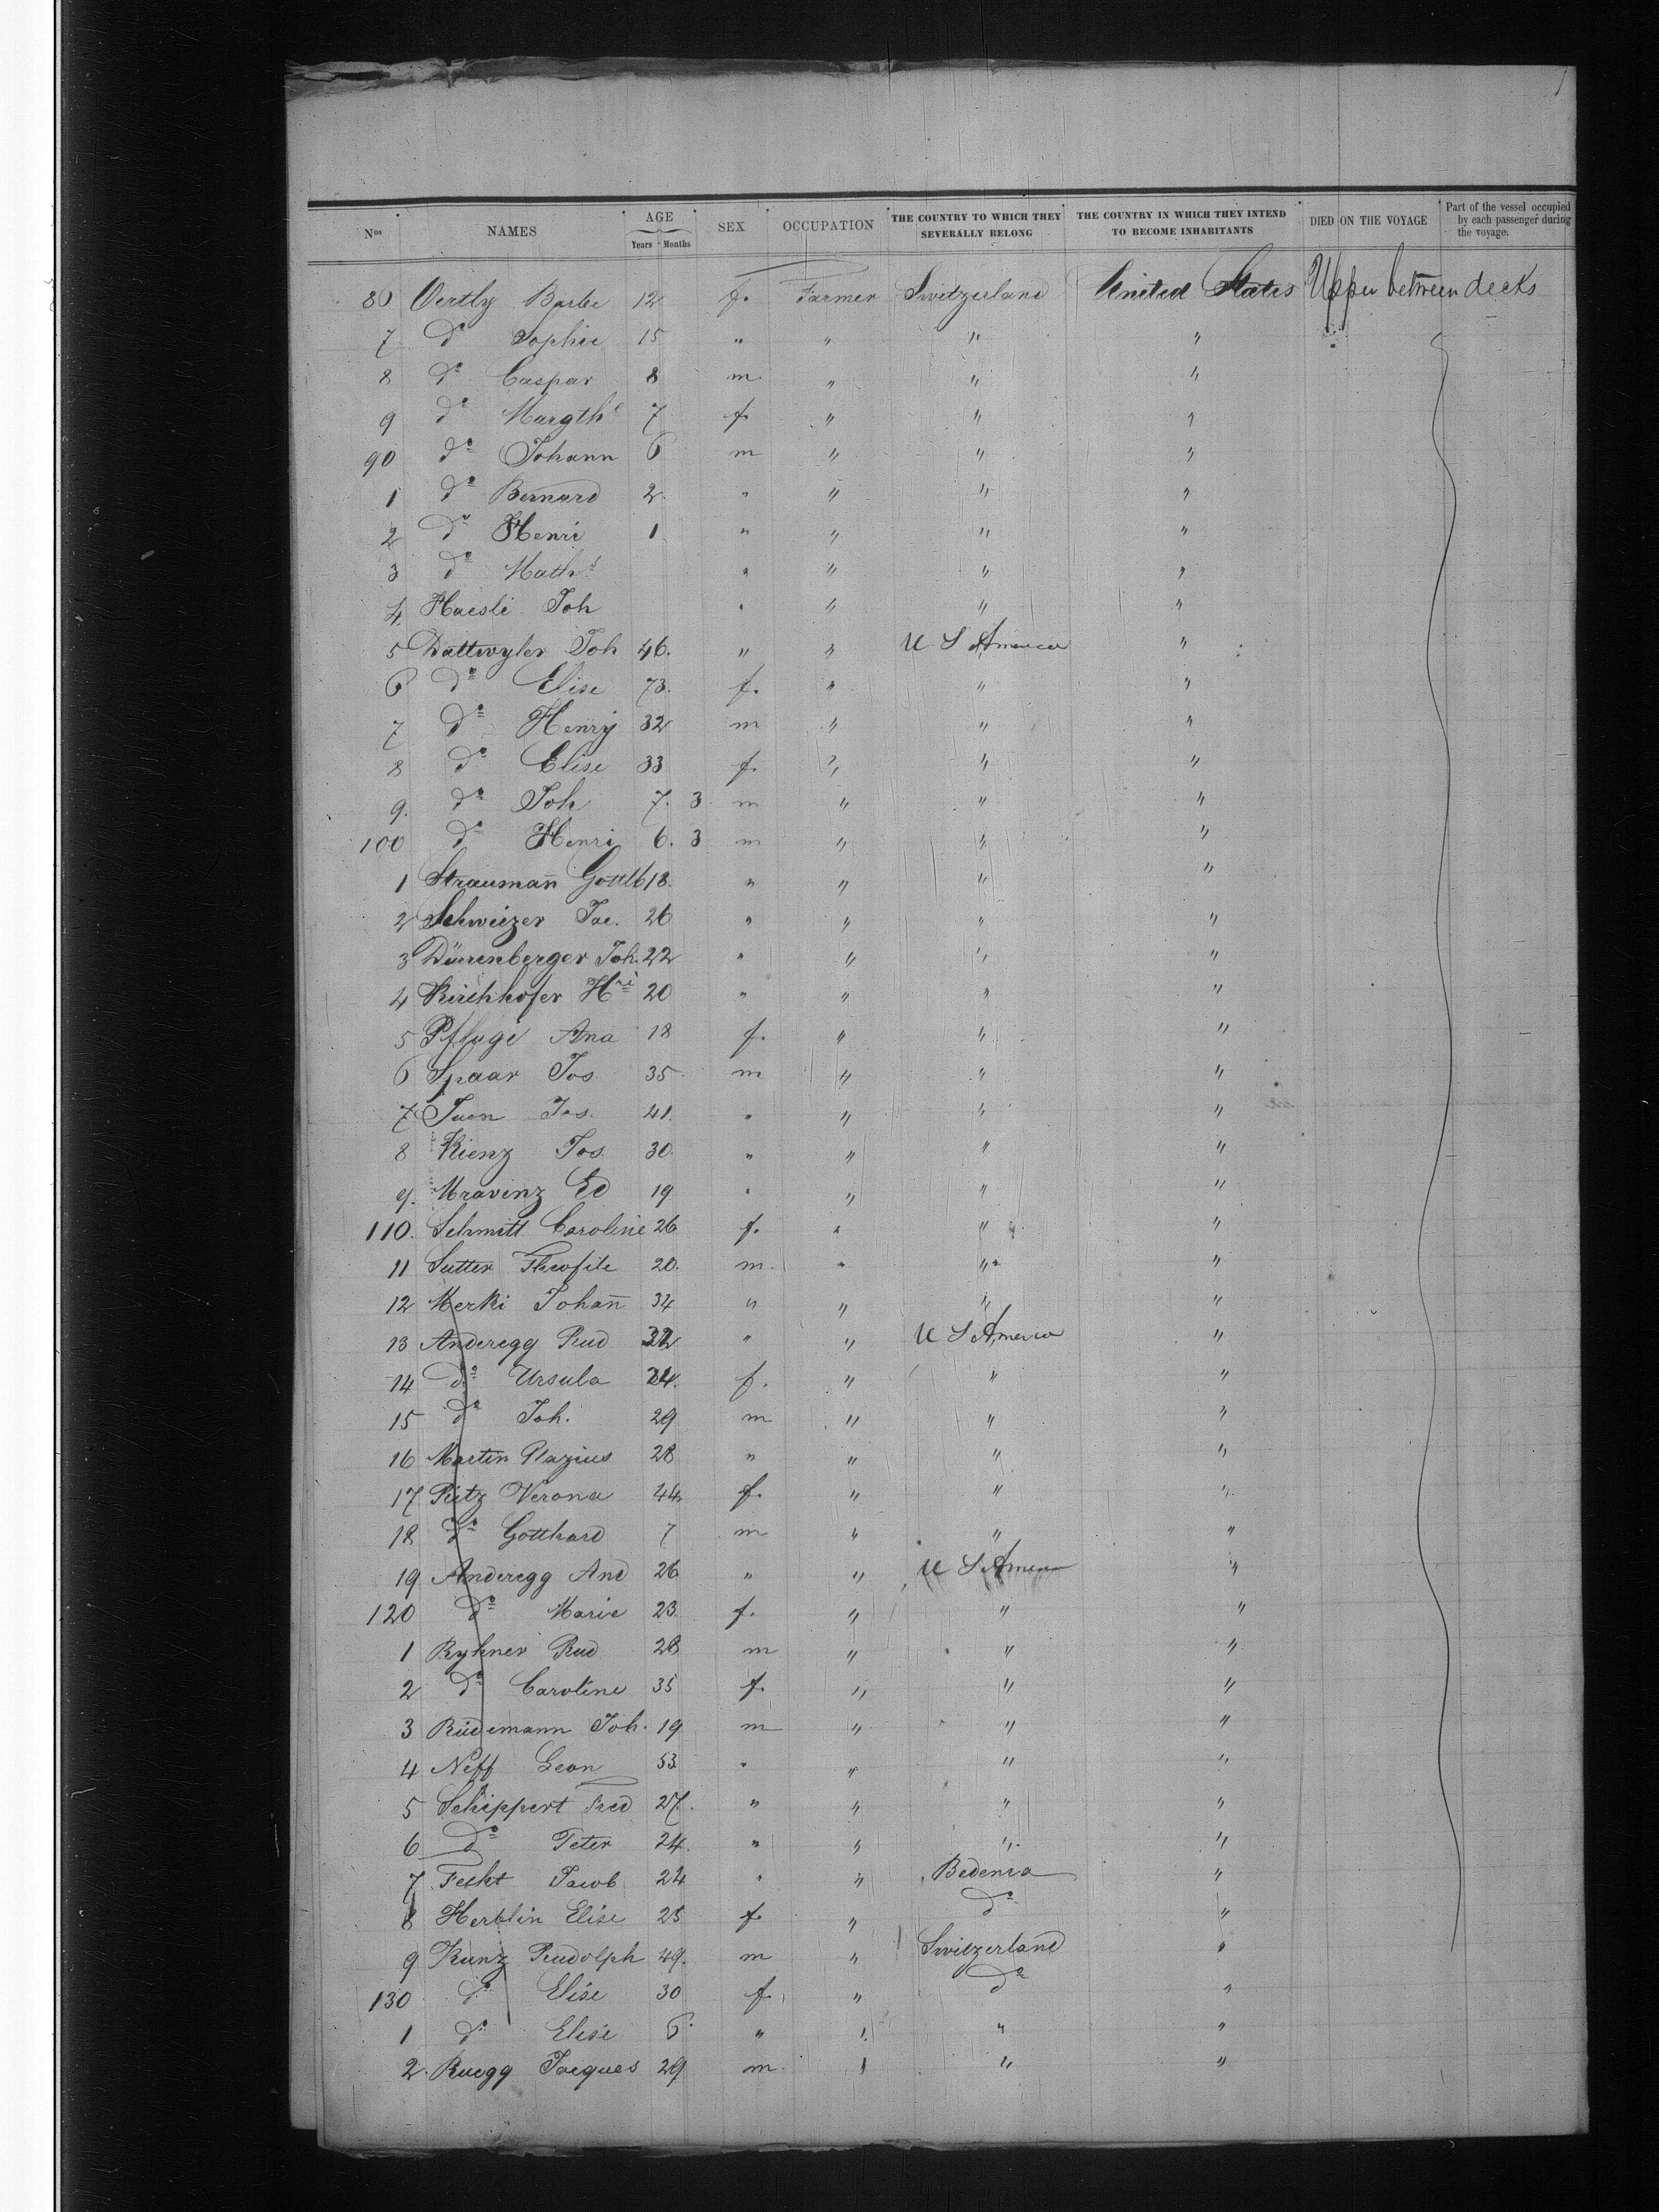 Nos NAMES AGE Years Months SEX OCCUPATION THE COUNTRY TO WHICH THEY SEVERALLY BELONG THE COUNTRY IN WHICH THEY INTEND TO BECOME INHABITANTS DIED ON THE VOYAGE Part of the vessel occupied by each passenger during the voyage.
80 Oertly Barbe 12 f. Farmer Switzerland United States Upper between decks
7 do Sophie 15 " " " "
8 do Caspar 8 m " " "
9 do Margthe 7 f. " " "
90 do Johann 6 m " " "
1 do Bernard 2 " " " "
2 do Henri 1 " " " "
3 do Maths " " " "
4 Haesli Joh " " " "
5 Dattwyler Joh 46. " " U S America "
6 do Elise 73. f. " " "
7 do Henry 32 m " " "
8 do Elise 33 f. " " "
9. do Joh 7. 3 m " " "
100 do Henri 6. 3 m " " "
1 Straumañ Gottlb 18. " " " "
2 Schweizer Jac. 26 " " " "
3 Dürrenberger Joh. 22 " " " "
4 Kirchhofer Hri 20 " " " "
5 Pfluge Ana 18 f. " " "
6 Spaar Jos 35 m " " "
7 Jos. 41. " " " "
8 Kienz Jos 30. " " " "
9. Mravinz Ed 19 " " " "
110. Schmitt Caroline 26 f. " " "
11 Sutter 20. m. " " "
12 Merki Johañ 34 " " " "
13 Anderegg Rud 32 " " U S America "
14 do Ursula 24. f. " " "
15 do Joh. 29 m " " "
16 Martin Plazius 28 " " " "
17 Verona 44 f. " " "
18 do Gotthard 7 m " " "
19 Anderegg And 26 " " U S America "
120 do Marie 23 f. " " "
1 Ryhner Rud 28 m " " "
2 do Caroline 35 f. " " "
3 Rüdemann Joh. 19 m " " "
4 Neff Leon 53 " " " "
5 Schippert Fred 27. " " " "
6 do Peter 24. " " " "
7 Fecht Jacob 24 " " Bedenia "
8 Herblin Elise 25 f. " do "
9 Kunz Rudolph 49. m " Switzerland "
130 do Elise 30 f. " do "
1 do Elise 6 " " " "
2. Ruegg Jacques 29 m. " " "